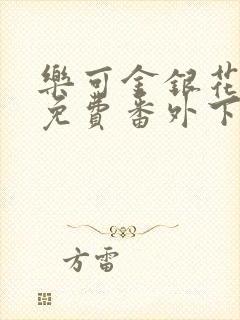 樂可金銀花
免費番外下
方雷